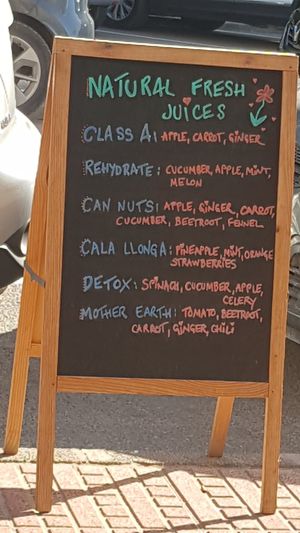 NATURAL FRESH
JUICES
CLASS A: APPLE, CARROT, GINGER
REHYDRATE: CUCUMBER, APPLE, MINT,
MELON
CAN NUTS: APPLE, GINGER, CARROT,
CUCUMBER, BEETROOT, FENNEL
CALA LLONGA: PINEAPPLE, MINT, ORANGE
STRAWBERRIES
DETOX: SPINACH, CUCUMBER, APPLE,
CELERY
MOTHER EARTH: TOMATO, BEETROOT,
CARROT, GINGER, CHILI